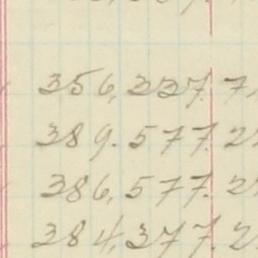 356,337.7
389.577.2
386,577.2
384,377.2